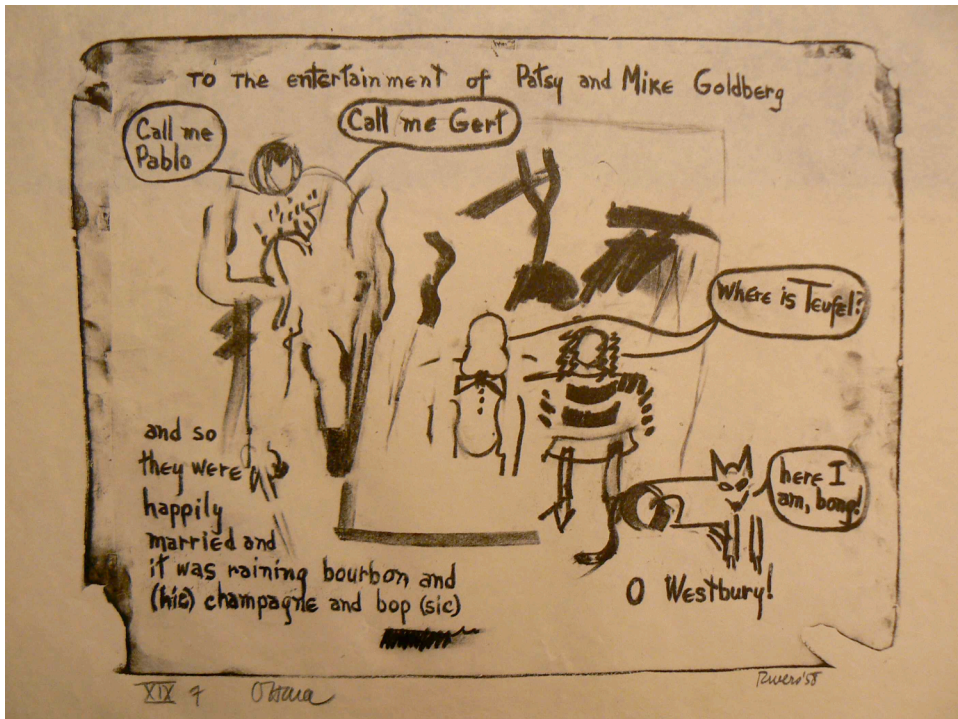 TO THE entertainment of Patsy and Mike Goldberg
Call me
Pablo
Call me Gert
Where is Teufel?
here I
am, bong!
and so
they were
happily
married and
it was raining bourbon and
(hic) champagne and bop (sic)
O Westbury!
XIX
O'Hara
Rivers '58